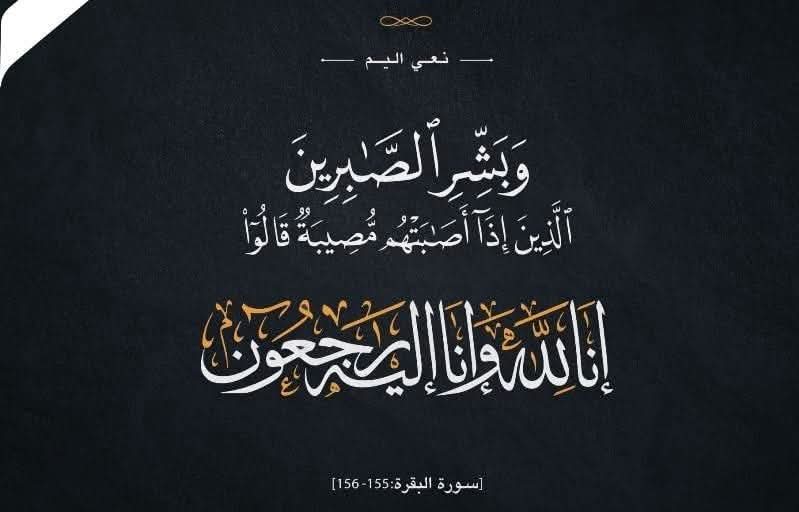 نعي اليم
وَبَشِّرِ ٱلصَّٰبِرِينَ
ٱلَّذِينَ إِذَآ أَصَٰبَتْهُم مُّصِيبَةٌ قَالُوٓا۟
إنا لله وإنا إليه راجعون
[سورة البقرة:155-156]